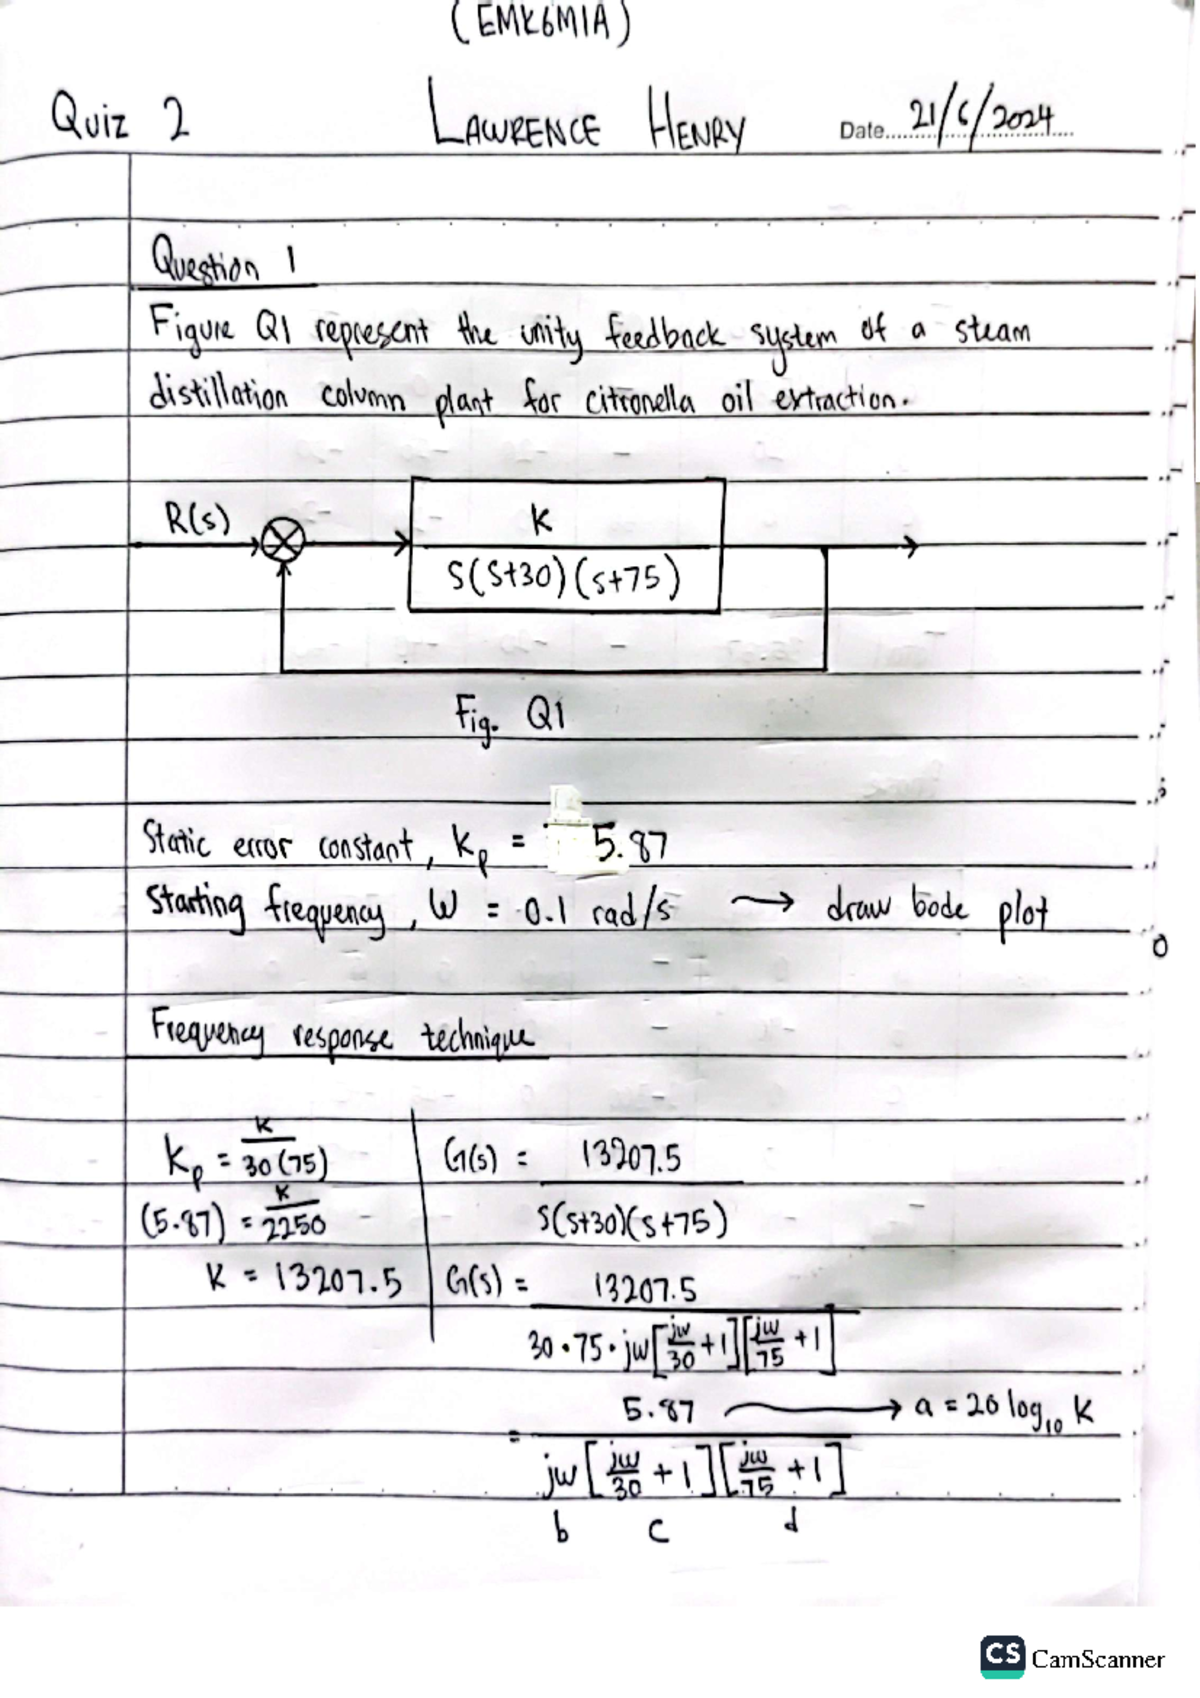 (EMK6M1A)
Quiz 2 LAWRENCE HENRY Date 21/6/2024
Question 1
Figure Q1 represent the unity feedback system of a steam
distillation column plant for citronella oil extraction.
R(s) K
S(S+30)(s+75)
Fig. Q1
Static error constant, Kp = 5.87
Starting frequency, W = 0.1 rad/s → draw bode plot
Frequency response technique
Kp = K / 30(75)
(5.87) = K / 2250
K = 13207.5
G(s) = 13207.5 / S(s+30)(s+75)
G(s) = 13207.5 / 30·75·jw[jw/30 +1][jw/75 +1]
= 5.87 / jw[jw/30 +1][jw/75 +1] → a = 20 log10 K
b c d
CS CamScanner